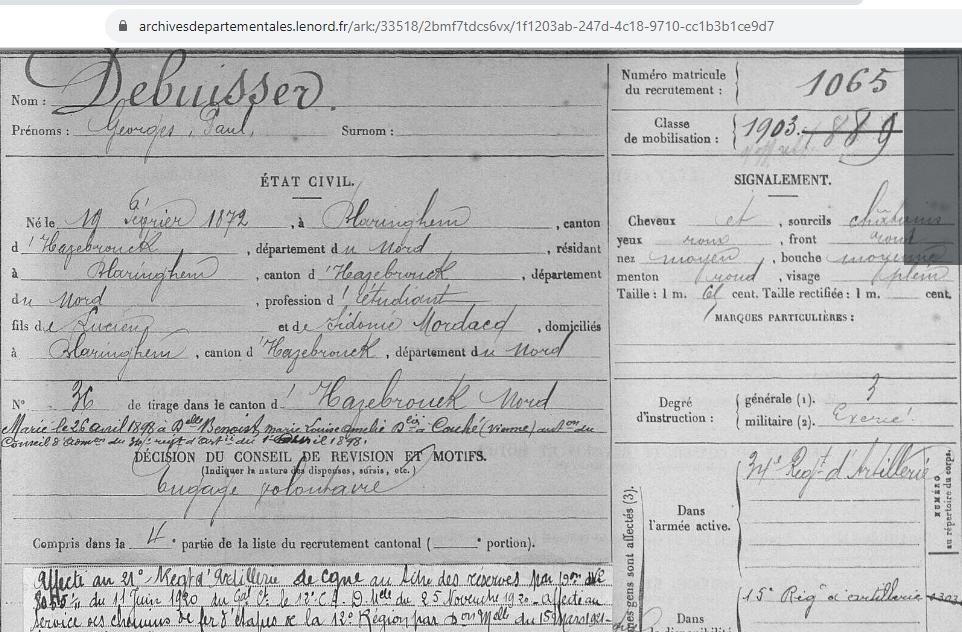 archivesdepartementales.lenord.fr/ark:/33518/2bmf7tdcs6vx/1f1203ab-247d-4c18-9710-cc1b3b1ce9d7
Nom : Debuisser.
Prénoms : Georges, Paul, Surnom :
Numéro matricule du recrutement : 1065
Classe de mobilisation : 1903. 1889
ÉTAT CIVIL.
Né le 19 février 1872, à Blaringhem, canton
d'Hazebrouck, département du Nord, résidant
à Blaringhem, canton d'Hazebrouck, département
du Nord, profession d'étudiant
fils de Lucien et de Sidonie Mordacq, domiciliés
à Blaringhem, canton d'Hazebrouck, département du Nord
N° 36 de tirage dans le canton d'Hazebrouck Nord
Marié le 26 avril 1898 à Delle Benoist, Marie Louise Amélie à Couhé (Vienne) auton du
Conseil d'admon du 34e regt d'artie du avril 1898.
DÉCISION DU CONSEIL DE REVISION ET MOTIFS.
(Indiquer la nature des dispenses, sursis, etc.)
Engagé volontaire
Compris dans la 4e partie de la liste du recrutement cantonal ( e portion).
affecté au 21e Regt d'Artillerie de Cgne au titre des réserves par
du 11 Juin 1920 du Gal Ct le 12e C.A. D. Mlle du 25 Novembre 1920 - affecté au
Service des chemins de fer d'étapes de la 12e Région par Don Mlle du 15 Mars 1921-
SIGNALEMENT.
Cheveux et, sourcils châtains
yeux roux, front rond
nez moyen, bouche moyenne
menton rond, visage plein
Taille : 1 m. 61 cent. Taille rectifiée : 1 m. cent.
MARQUES PARTICULIÈRES :
Degré d'instruction : générale (1). 3
militaire (2). Exercé.
NUMÉRO
au répertoire du corps.
Dans l'armée active. 34e Regt d'Artillerie
gens sont affectés (3).
Dans 15e Rég d'artillerie